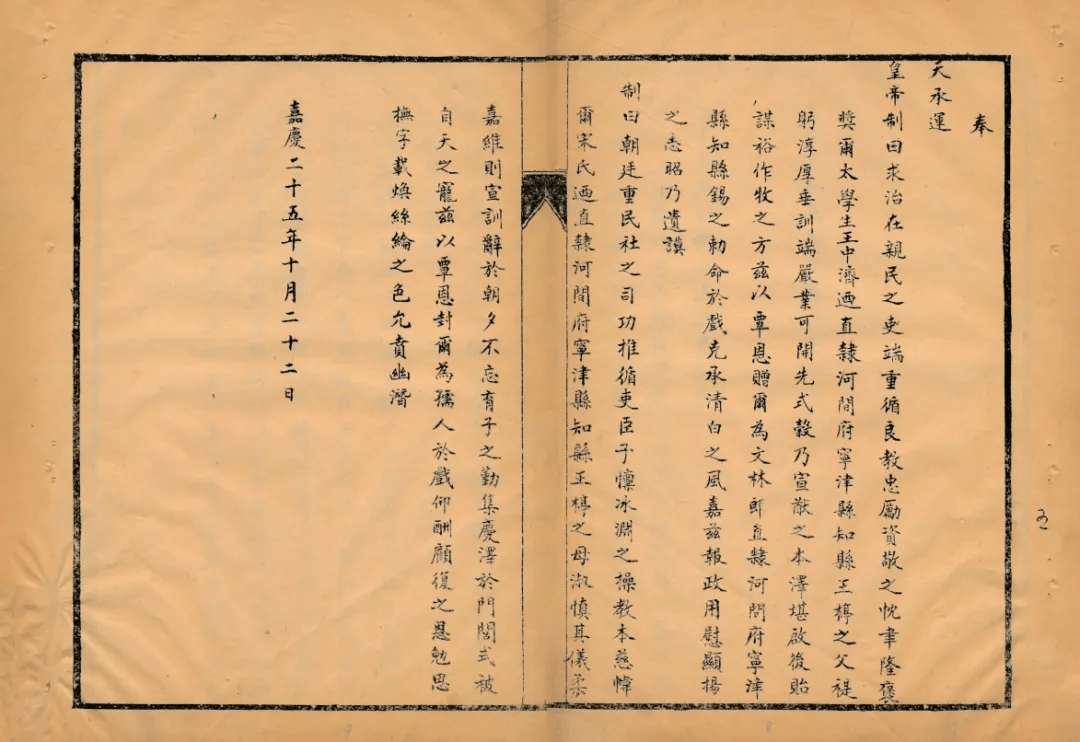 奉
天承運
皇帝制曰求治在親民之吏端重循良教忠勵資敬之忱聿隆褒
獎爾太學生王中濟迺直隸河間府寧津縣知縣王槨之父禔
躬淳厚垂訓端嚴業可開先式榖乃宣猷之本澤堪啟後貽
謀裕作牧之方茲以覃恩贈爾為文林郎直隸河間府寧津
縣知縣錫之勅命於戲克承清白之風嘉茲報政用慰顯揚
之志昭乃遺謨
制曰朝廷重民社之司功推循吏臣子懍冰淵之操教本慈幃
爾宋氏迺直隸河間府寧津縣知縣王槨之母淑慎其儀柔
嘉維則宣訓辭於朝夕不忘育子之勤集慶澤於門閭式被
自天之寵茲以覃恩封爾為孺人於戲仰酬顧復之恩勉思
撫字載煥絲綸之色允賁幽潛
嘉慶二十五年十月二十二日
五